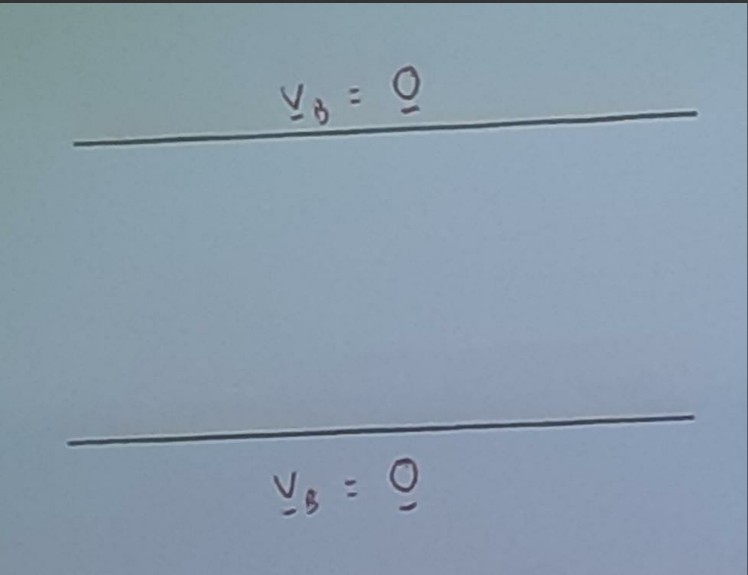 v_B = 0
v_B = 0